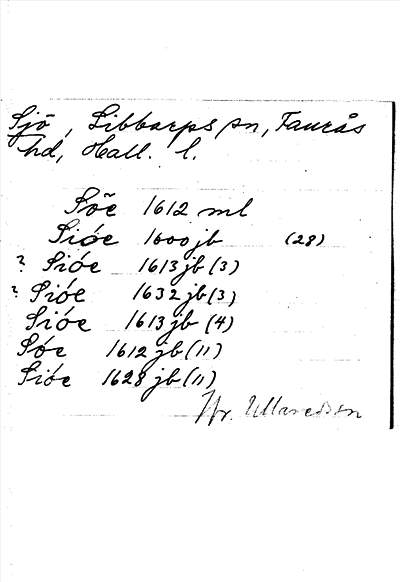 Sjö, Libbarps sn, Faurås
hd, Hall. l.
Sõe 1612 ml
Sióe 1600 jb (28)
? Sióe 1613 jb (3)
? Sióe 1632 jb (3)
Sióe 1613 jb (4)
Sóe 1612 jb (11)
Sióe 1628 jb (11)
Jfr. Ullareds sn